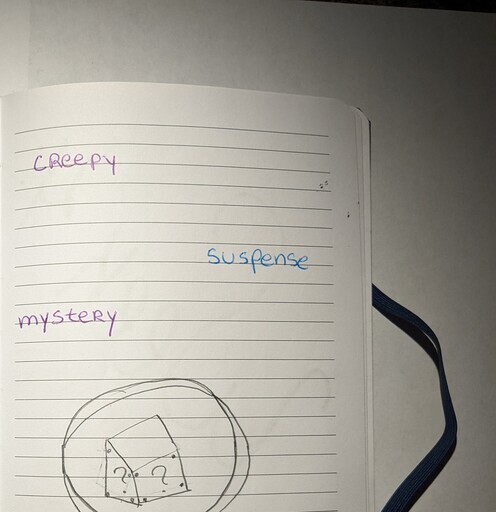 CReepy
suspense
msteRy
? ?